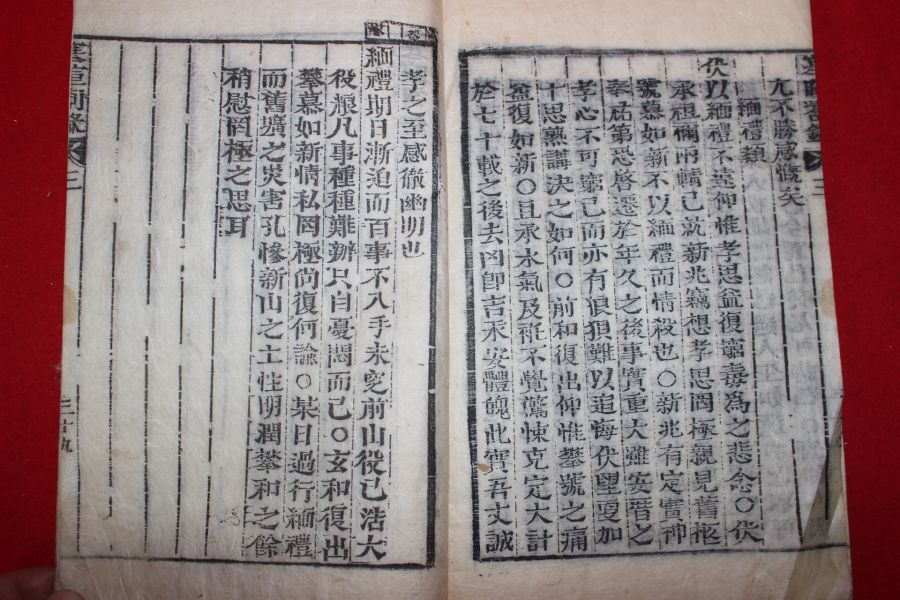 尤不勝感慨矣
緬禮類
伏以緬禮不遠仰惟孝思益復窮毒為之悲念○伏
承祖禰兩輴已就新兆竊想孝思罔極親見舊柩
號慕如新不以緬禮而情殺也○新兆有定實神
奉祐第恐啓遷於年久之後事實重大雖安厝之
孝心不可窮已而亦有狼狽難以追悔伏望更加
十思熟講決之如何○前和復出仰惟攀號之痛
益復如新○且承水氣及裧不覺驚悚克定大計
於七十載之後去凶即吉永安體魄此實吾丈誠
孝之至感徹幽明也
緬禮期日漸迫而百事不入手未完前山役已浩大
役粮凡事種種難辦只自憂悶而已○玄和復出
攀慕如新情私罔極尚復何諭○某日過行緬禮
而舊壙之災害孔慘新山之土性明潤攀和之餘
稍慰罔極之思耳
三